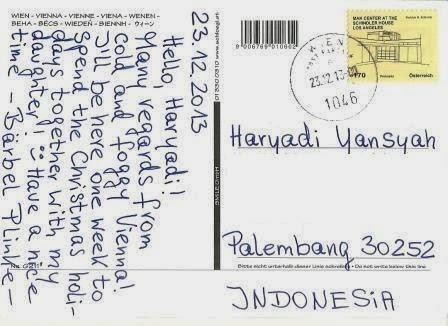 WIEN • VIENNA • VIENNE • VIENA • WENEN •
BEHA • BÉCS • WIEDEŇ • BIENNH • ウィーン
23.12.2013
Hello, Haryadi!
Many regards from
cold and foggy Vienna!
I'll be here one week to
spend the Christmas holi-
days together with my
daughter! Have a nice
time - Bärbel Plinke -
SMILE GmbH
9 006769 010602
MAK CENTER AT THE
SCHINDLER HOUSE
LOS ANGELES
170
Österreich
WIEN
23.12.13
1046
Haryadi Yansyah
Palembang 30252
Bitte nicht unterhalb dieser Linie schreiben • Do not write below this line
INDONESIA